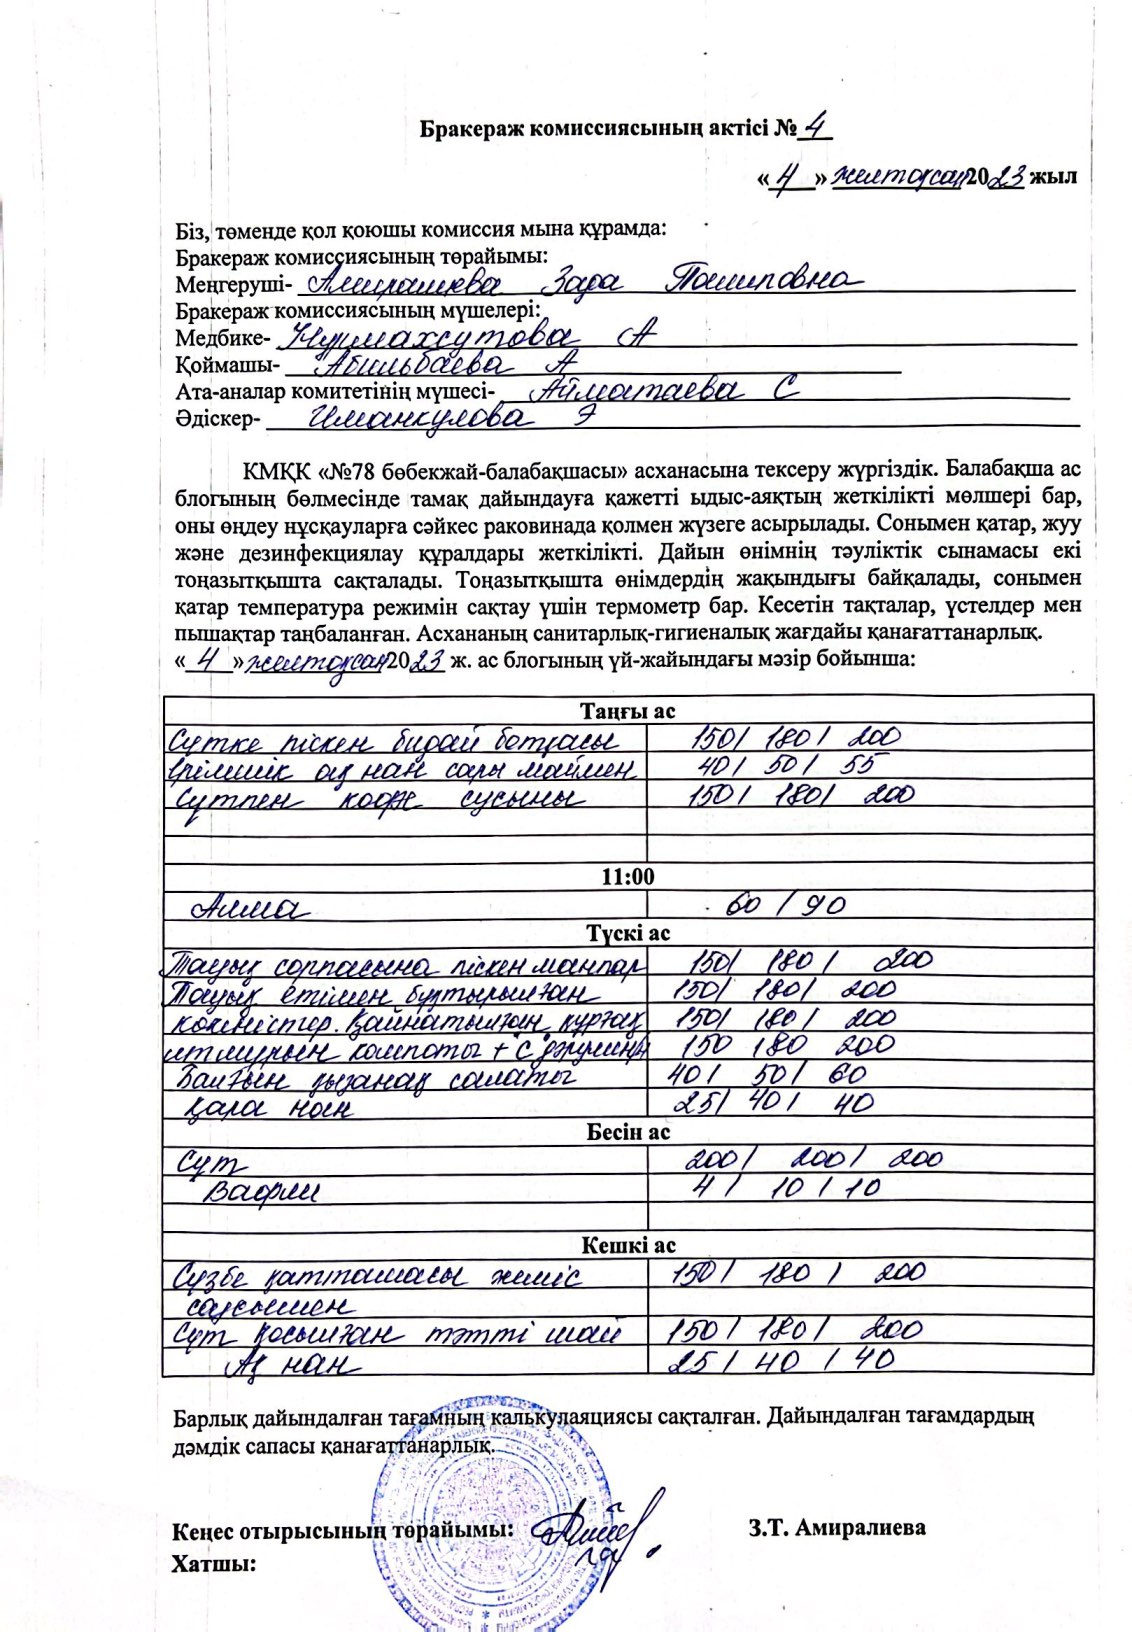 Бракераж комиссиясының актісі № 4
« 4 » желтоқсан 2023 жыл
Біз, төменде қол қоюшы комиссия мына құрамда:
Бракераж комиссиясының төрайымы:
Меңгеруші- Амиралиева Зада
Бракераж комиссиясының мүшелері:
Медбике- Нурмахсутова А
Қоймашы- Абильбаева А
Ата-аналар комитетінің мүшесі- Айматаева С
Әдіскер- Иманкулова Э
КМҚК «№78 бөбекжай-балабақшасы» асханасына тексеру жүргіздік. Балабақша ас
блогының бөлмесінде тамақ дайындауға қажетті ыдыс-аяқтың жеткілікті мөлшері бар,
оны өңдеу нұсқауларға сәйкес раковинада қолмен жүзеге асырылады. Сонымен қатар, жуу
және дезинфекциялау құралдары жеткілікті. Дайын өнімнің тәуліктік сынамасы екі
тоңазытқышта сақталады. Тоңазытқышта өнімдердің жақындығы байқалады, сонымен
қатар температура режимін сақтау үшін термометр бар. Кесетін тақталар, үстелдер мен
пышақтар таңбаланған. Асхананың санитарлық-гигиеналық жағдайы қанағаттанарлық.
« 4 » желтоқсан 2023 ж. ас блогының үй-жайындағы мәзір бойынша:
Таңғы ас
Сүтке піскен бидай ботқасы 150/ 180/ 200
Ірімшік ақ нан сары маймен 40/ 50/ 55
Сүтпен кофе сусыны 150/ 180/ 200
11:00
Алма 60 / 90
Түскі ас
Тауық сорпасына піскен манпар 150/ 180/ 200
Тауық етімен бұқтырылған 150/ 180/ 200
көкөністер. Қайнатылған құрғақ 150/ 180/ 200
итмұрын компоты + "С" дәрумені 150 180 200
Балғын қызанақ салаты 40/ 50/ 60
Қара нан 25/ 40/ 40
Бесін ас
Сүт 200/ 200/ 200
Вафли 4/ 10/ 10
Кешкі ас
Сүзбе қаттамасы жеміс 150/ 180/ 200
соусымен
Сүт қосылған тәтті шай 150/ 180/ 200
Ақ нан 25/ 40/ 40
Барлық дайындалған тағамның калькулаяциясы сақталған. Дайындалған тағамдардың
дәмдік сапасы қанағаттанарлық.
Кеңес отырысының төрайымы: З.Т. Амиралиева
Хатшы: